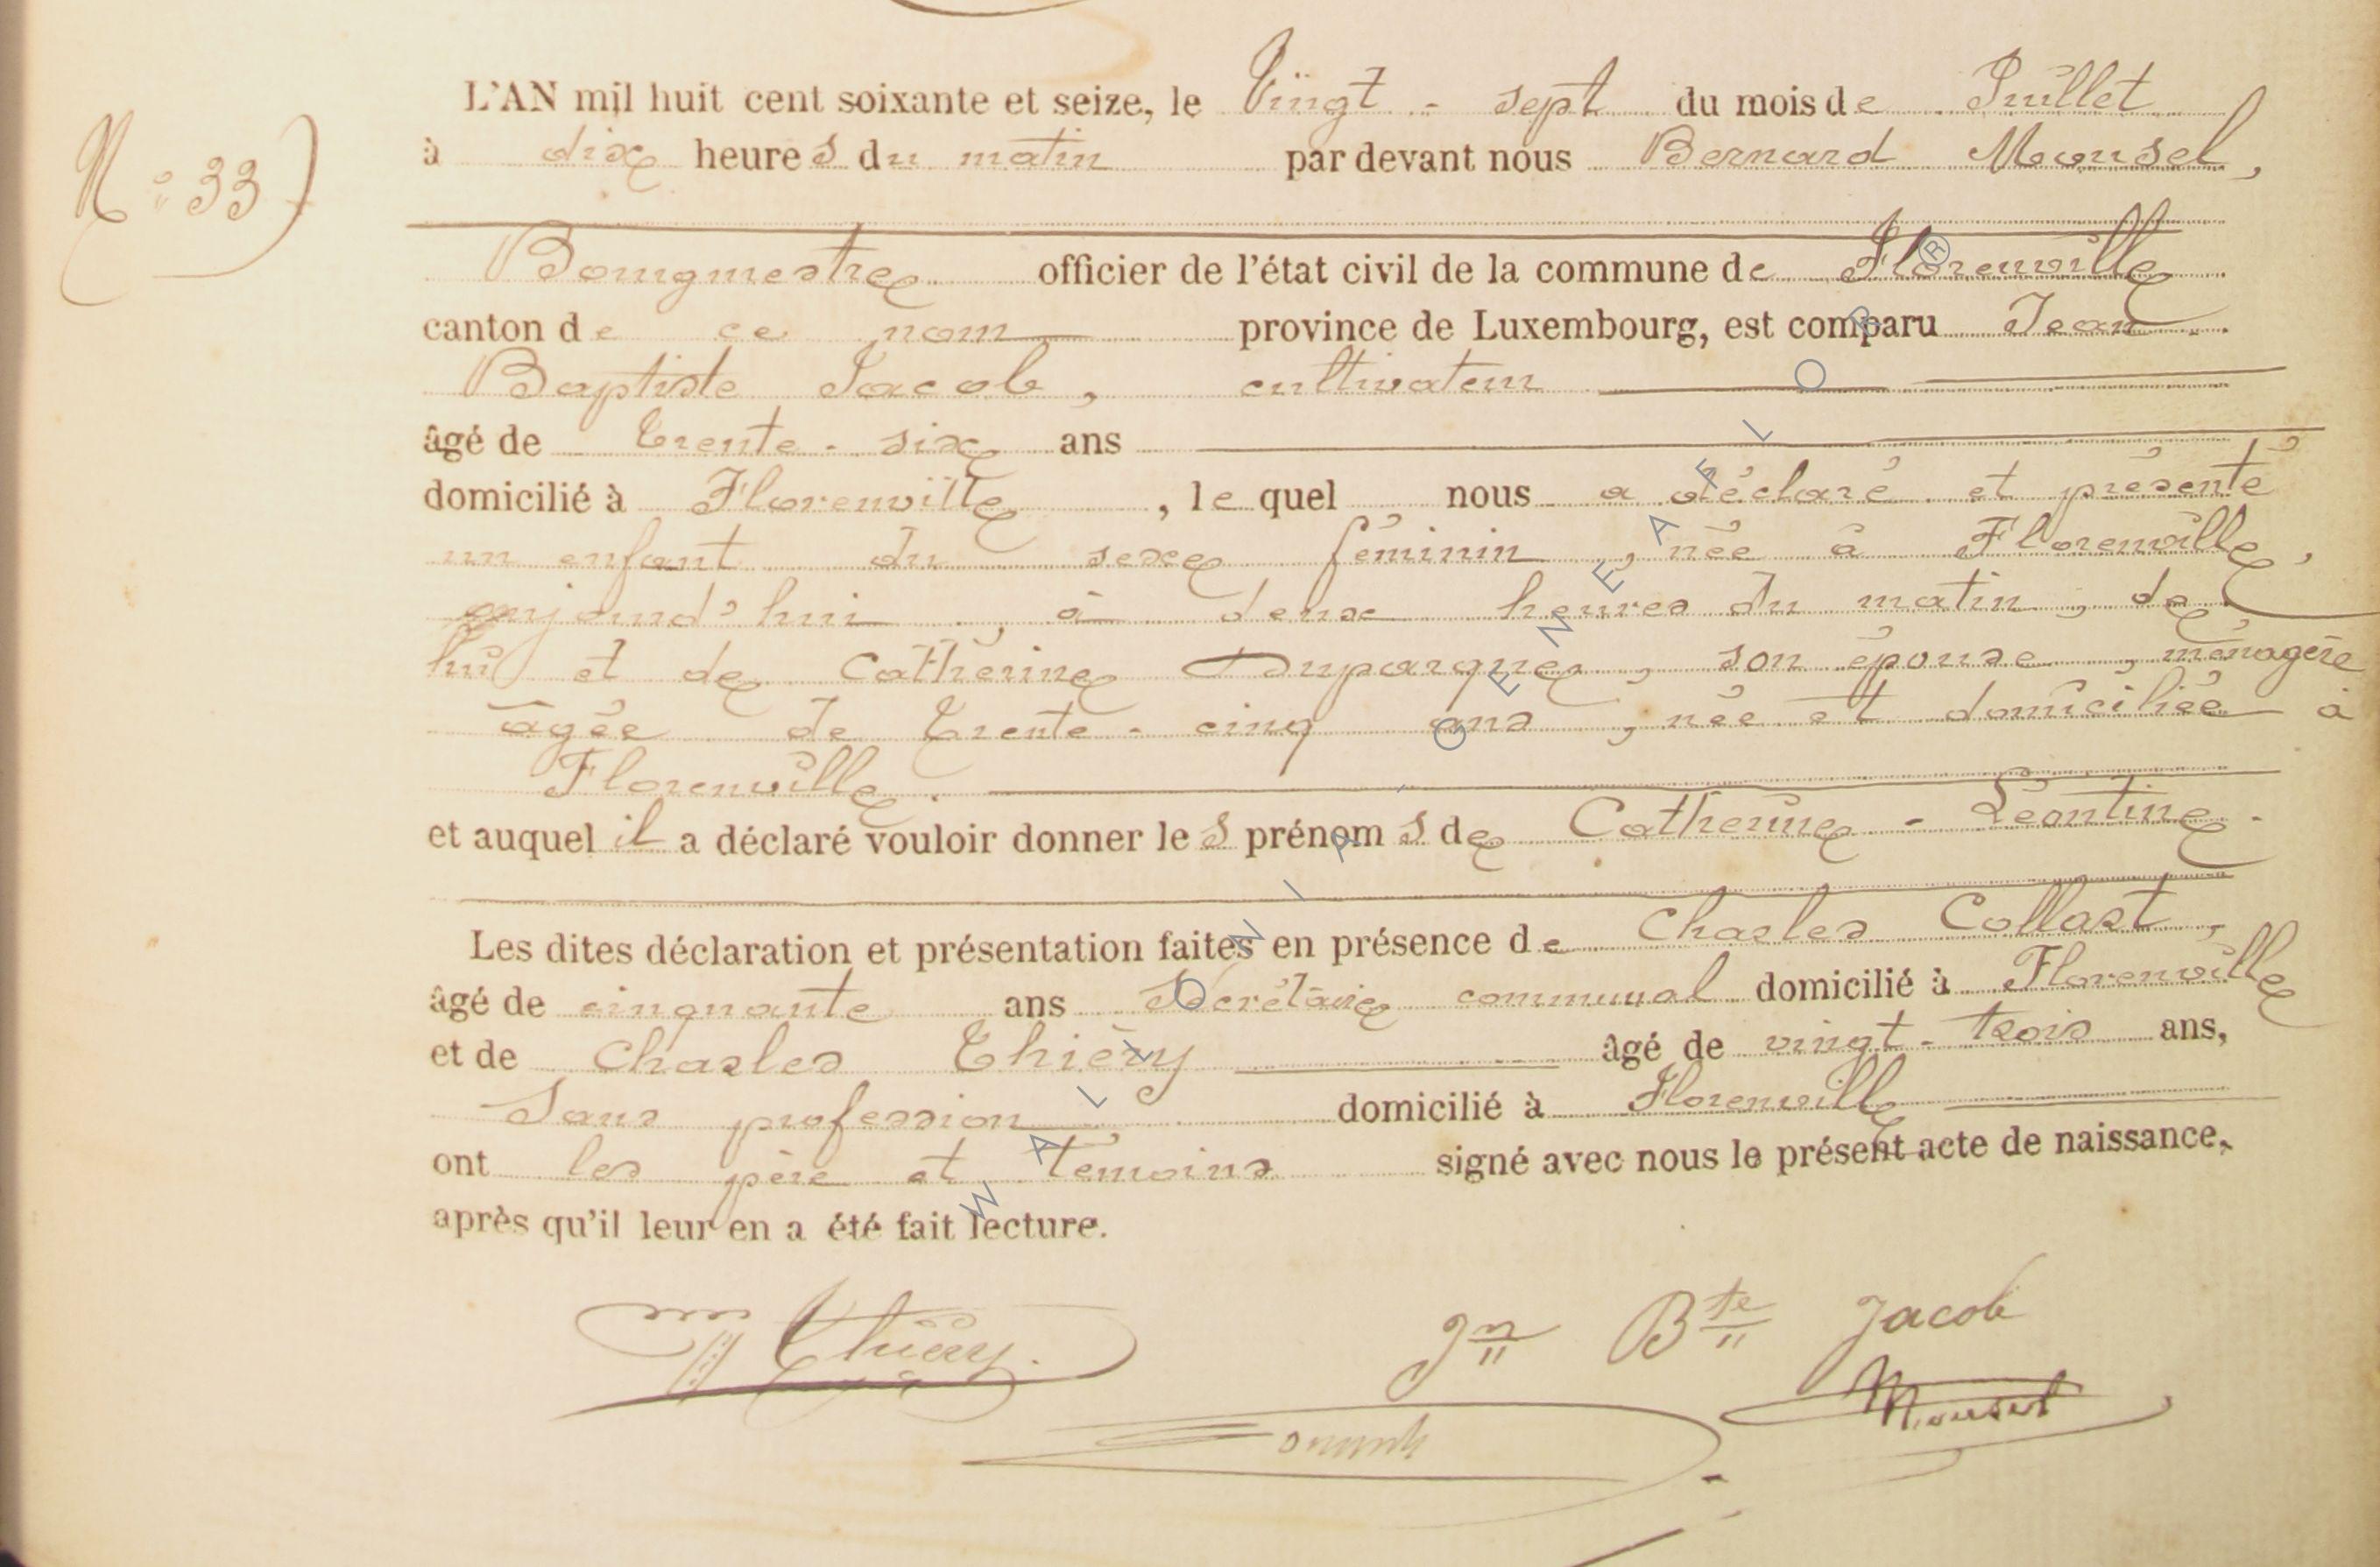 N° 33)
L'AN mil huit cent soixante et seize, le Vingt - sept du mois de Juillet
à dix heures du matin par devant nous Bernard Mousel,
Bourgmestre officier de l'état civil de la commune de Florenville
canton de ce nom province de Luxembourg, est comparu Jean
Baptiste Jacob, cultivateur
âgé de trente - six ans
domicilié à Florenville, lequel nous a déclaré et présenté
un enfant du sexe féminin, née à Florenville,
aujourd'hui, à deux heures du matin, de
lui et de Catherine Duparque, son épouse, ménagère
âgée de trente - cinq ans, née et domiciliée à
Florenville.
et auquel il a déclaré vouloir donner les prénoms de Catherine - Léontine.
Les dites déclaration et présentation faites en présence de Charles Collart,
âgé de cinquante ans Secrétaire communal domicilié à Florenville
et de Charles Thiéry âgé de vingt - trois ans,
Sans profession domicilié à Florenville
ont les père et témoins signé avec nous le présent acte de naissance,
après qu'il leur en a été fait lecture.
Thiéry.
Jn Bte Jacob
Mousel
WALLONIE GENEALOR ®